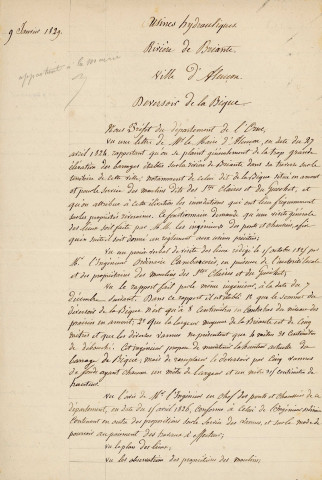 9 Janvier 1829.
Usines hydrauliques
Rivière de Briante
appartient à la mairie
Ville d'Alençon
Déversoir de la Bique
Nous Préfet du département de l'Orne,
Vu une lettre de Mr le Maire d'Alençon, en date du 27
avril 1824, rapportant qu'on se plaint généralement de la trop grande
élévation des barrages établis sur la rivière de Briante dans sa traversée sur le
territoire de cette ville, notamment de celui dit de la Bique situé en amont
et pour le service des moulins dits des Stes Claires et du Guichet, et
qu'on attribue à cette élévation les inondations qui ont lieu fréquemment
sur les propriétés riveraines. Le pétitionnaire demande qu'une visite générale
des lieux soit faite par M.M. les ingénieurs des ponts et chaussées, afin
qu'ensuite il soit donné un règlement aux usines précitées;
Vu un procès verbal de visite des lieux rédigé le 15 octobre 1825 par
Mr l'Ingénieur Ordinaire en présence de l'autorité locale
et des propriétaires des moulins des Stes Claires et du Guichet;
Vu le rapport fait par le même ingénieur, à la date du 7
décembre suivant. Dans ce rapport il établit 1º que le sommet du
déversoir de la Bique n'est qu'à 8 centimètres en contrebas du niveau des
prairies en amont; 2º que la largeur moyenne de la Briante est de cinq
mètres et que les dites vannes ne présentent que 2 mètres 20 centimètres
de débouché. Cet ingénieur propose de maintenir la hauteur actuelle du
barrage de Bique, mais de remplacer le déversoir par cinq vannes
de fond ayant chacune un mètre de largeur et un mètre 25 centimètres de
hauteur.
Vu l'avis de Mr l'Ingénieur en chef des ponts et chaussées de ce
département, en date du 15 avril 1826, conforme à celui de l'ingénieur ordinaire
contenant en outre des propositions sur le service des vannes, et sur le mode de
pourvoir au paiement des travaux à effectuer;
Vu le plan des lieux;
Vu les observations des propriétaires des moulins;